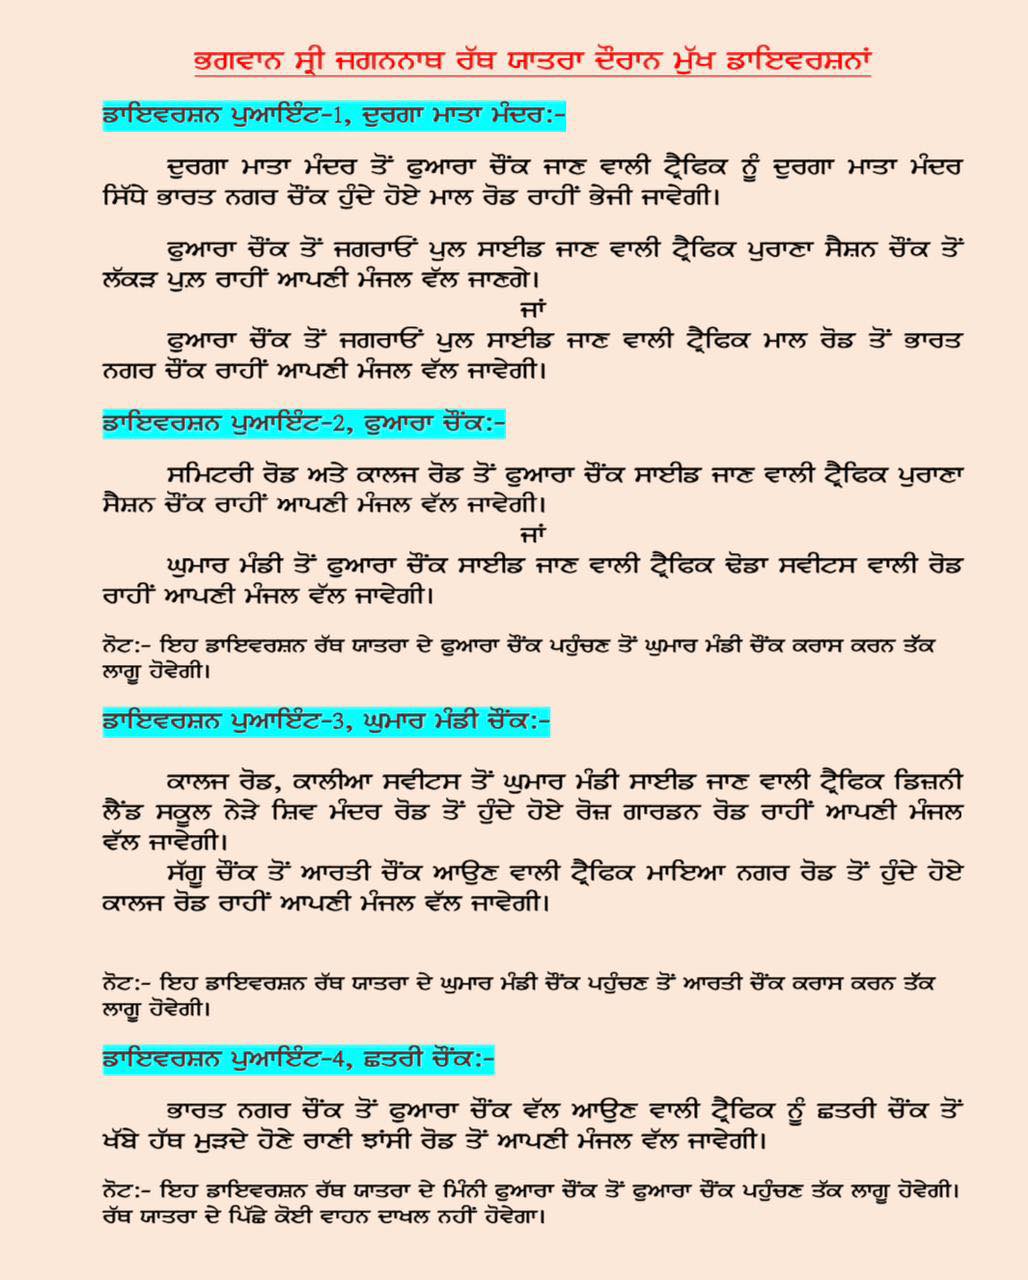 ਭਗਵਾਨ ਸ੍ਰੀ ਜਗਨਨਾਥ ਰੱਥ ਯਾਤਰਾ ਦੌਰਾਨ ਮੁੱਖ ਡਾਇਵਰਸ਼ਨਾਂ
ਡਾਇਵਰਸ਼ਨ ਪੁਆਇੰਟ-1, ਦੁਰਗਾ ਮਾਤਾ ਮੰਦਰ:-
ਦੁਰਗਾ ਮਾਤਾ ਮੰਦਰ ਤੋਂ ਫੁਆਰਾ ਚੌਂਕ ਜਾਣ ਵਾਲੀ ਟ੍ਰੈਫਿਕ ਨੂੰ ਦੁਰਗਾ ਮਾਤਾ ਮੰਦਰ
ਸਿੱਧੇ ਭਾਰਤ ਨਗਰ ਚੌਂਕ ਹੁੰਦੇ ਹੋਏ ਮਾਲ ਰੋਡ ਰਾਹੀਂ ਭੇਜੀ ਜਾਵੇਗੀ।
ਫੁਆਰਾ ਚੌਂਕ ਤੋਂ ਜਗਰਾਓਂ ਪੁਲ ਸਾਈਡ ਜਾਣ ਵਾਲੀ ਟ੍ਰੈਫਿਕ ਪੁਰਾਣਾ ਸੈਸ਼ਨ ਚੌਂਕ ਤੋਂ
ਲੱਕੜ ਪੁਲ਼ ਰਾਹੀਂ ਆਪਣੀ ਮੰਜਲ ਵੱਲ ਜਾਣਗੇ।
ਜਾਂ
ਫੁਆਰਾ ਚੌਂਕ ਤੋਂ ਜਗਰਾਓਂ ਪੁਲ ਸਾਈਡ ਜਾਣ ਵਾਲੀ ਟ੍ਰੈਫਿਕ ਮਾਲ ਰੋਡ ਤੋਂ ਭਾਰਤ
ਨਗਰ ਚੌਂਕ ਰਾਹੀਂ ਆਪਣੀ ਮੰਜਲ ਵੱਲ ਜਾਵੇਗੀ।
ਡਾਇਵਰਸ਼ਨ ਪੁਆਇੰਟ-2, ਫੁਆਰਾ ਚੌਂਕ:-
ਸਮਿਟਰੀ ਰੋਡ ਅਤੇ ਕਾਲਜ ਰੋਡ ਤੋਂ ਫੁਆਰਾ ਚੌਂਕ ਸਾਈਡ ਜਾਣ ਵਾਲੀ ਟ੍ਰੈਫਿਕ ਪੁਰਾਣਾ
ਸੈਸ਼ਨ ਚੌਂਕ ਰਾਹੀਂ ਆਪਣੀ ਮੰਜਲ ਵੱਲ ਜਾਵੇਗੀ।
ਜਾਂ
ਘੁਮਾਰ ਮੰਡੀ ਤੋਂ ਫੁਆਰਾ ਚੌਂਕ ਸਾਈਡ ਜਾਣ ਵਾਲੀ ਟ੍ਰੈਫਿਕ ਢੋਡਾ ਸਵੀਟਸ ਵਾਲੀ ਰੋਡ
ਰਾਹੀਂ ਆਪਣੀ ਮੰਜਲ ਵੱਲ ਜਾਵੇਗੀ।
ਨੋਟ:- ਇਹ ਡਾਇਵਰਸ਼ਨ ਰੱਥ ਯਾਤਰਾ ਦੇ ਫੁਆਰਾ ਚੌਂਕ ਪਹੁੰਚਣ ਤੋਂ ਘੁਮਾਰ ਮੰਡੀ ਚੌਂਕ ਕਰਾਸ ਕਰਨ ਤੱਕ
ਲਾਗੂ ਹੋਵੇਗੀ।
ਡਾਇਵਰਸ਼ਨ ਪੁਆਇੰਟ-3, ਘੁਮਾਰ ਮੰਡੀ ਚੌਂਕ:-
ਕਾਲਜ ਰੋਡ, ਕਾਲੀਆ ਸਵੀਟਸ ਤੋਂ ਘੁਮਾਰ ਮੰਡੀ ਸਾਈਡ ਜਾਣ ਵਾਲੀ ਟ੍ਰੈਫਿਕ ਡਿਜ਼ਨੀ
ਲੈਂਡ ਸਕੂਲ ਨੇੜੇ ਸ਼ਿਵ ਮੰਦਰ ਰੋਡ ਤੋਂ ਹੁੰਦੇ ਹੋਏ ਰੋਜ਼ ਗਾਰਡਨ ਰੋਡ ਰਾਹੀਂ ਆਪਣੀ ਮੰਜਲ
ਵੱਲ ਜਾਵੇਗੀ।
ਸੱਗੂ ਚੌਂਕ ਤੋਂ ਆਰਤੀ ਚੌਂਕ ਆਉਣ ਵਾਲੀ ਟ੍ਰੈਫਿਕ ਮਾਇਆ ਨਗਰ ਰੋਡ ਤੋਂ ਹੁੰਦੇ ਹੋਏ
ਕਾਲਜ ਰੋਡ ਰਾਹੀਂ ਆਪਣੀ ਮੰਜਲ ਵੱਲ ਜਾਵੇਗੀ।
ਨੋਟ:- ਇਹ ਡਾਇਵਰਸ਼ਨ ਰੱਥ ਯਾਤਰਾ ਦੇ ਘੁਮਾਰ ਮੰਡੀ ਚੌਂਕ ਪਹੁੰਚਣ ਤੋਂ ਆਰਤੀ ਚੌਂਕ ਕਰਾਸ ਕਰਨ ਤੱਕ
ਲਾਗੂ ਹੋਵੇਗੀ।
ਡਾਇਵਰਸ਼ਨ ਪੁਆਇੰਟ-4, ਛਤਰੀ ਚੌਂਕ:-
ਭਾਰਤ ਨਗਰ ਚੌਂਕ ਤੋਂ ਫੁਆਰਾ ਚੌਂਕ ਵੱਲ ਆਉਣ ਵਾਲੀ ਟ੍ਰੈਫਿਕ ਨੂੰ ਛਤਰੀ ਚੌਂਕ ਤੋਂ
ਖੱਬੇ ਹੱਥ ਮੁੜਦੇ ਹੋਣੇ ਰਾਣੀ ਝਾਂਸੀ ਰੋਡ ਤੋਂ ਆਪਣੀ ਮੰਜਲ ਵੱਲ ਜਾਵੇਗੀ।
ਨੋਟ:- ਇਹ ਡਾਇਵਰਸ਼ਨ ਰੱਥ ਯਾਤਰਾ ਦੇ ਮਿੰਨੀ ਫੁਆਰਾ ਚੌਂਕ ਤੋਂ ਫੁਆਰਾ ਚੌਂਕ ਪਹੁੰਚਣ ਤੱਕ ਲਾਗੂ ਹੋਵੇਗੀ।
ਰੱਥ ਯਾਤਰਾ ਦੇ ਪਿੱਛੇ ਕੋਈ ਵਾਹਨ ਦਾਖਲ ਨਹੀਂ ਹੋਵੇਗਾ।